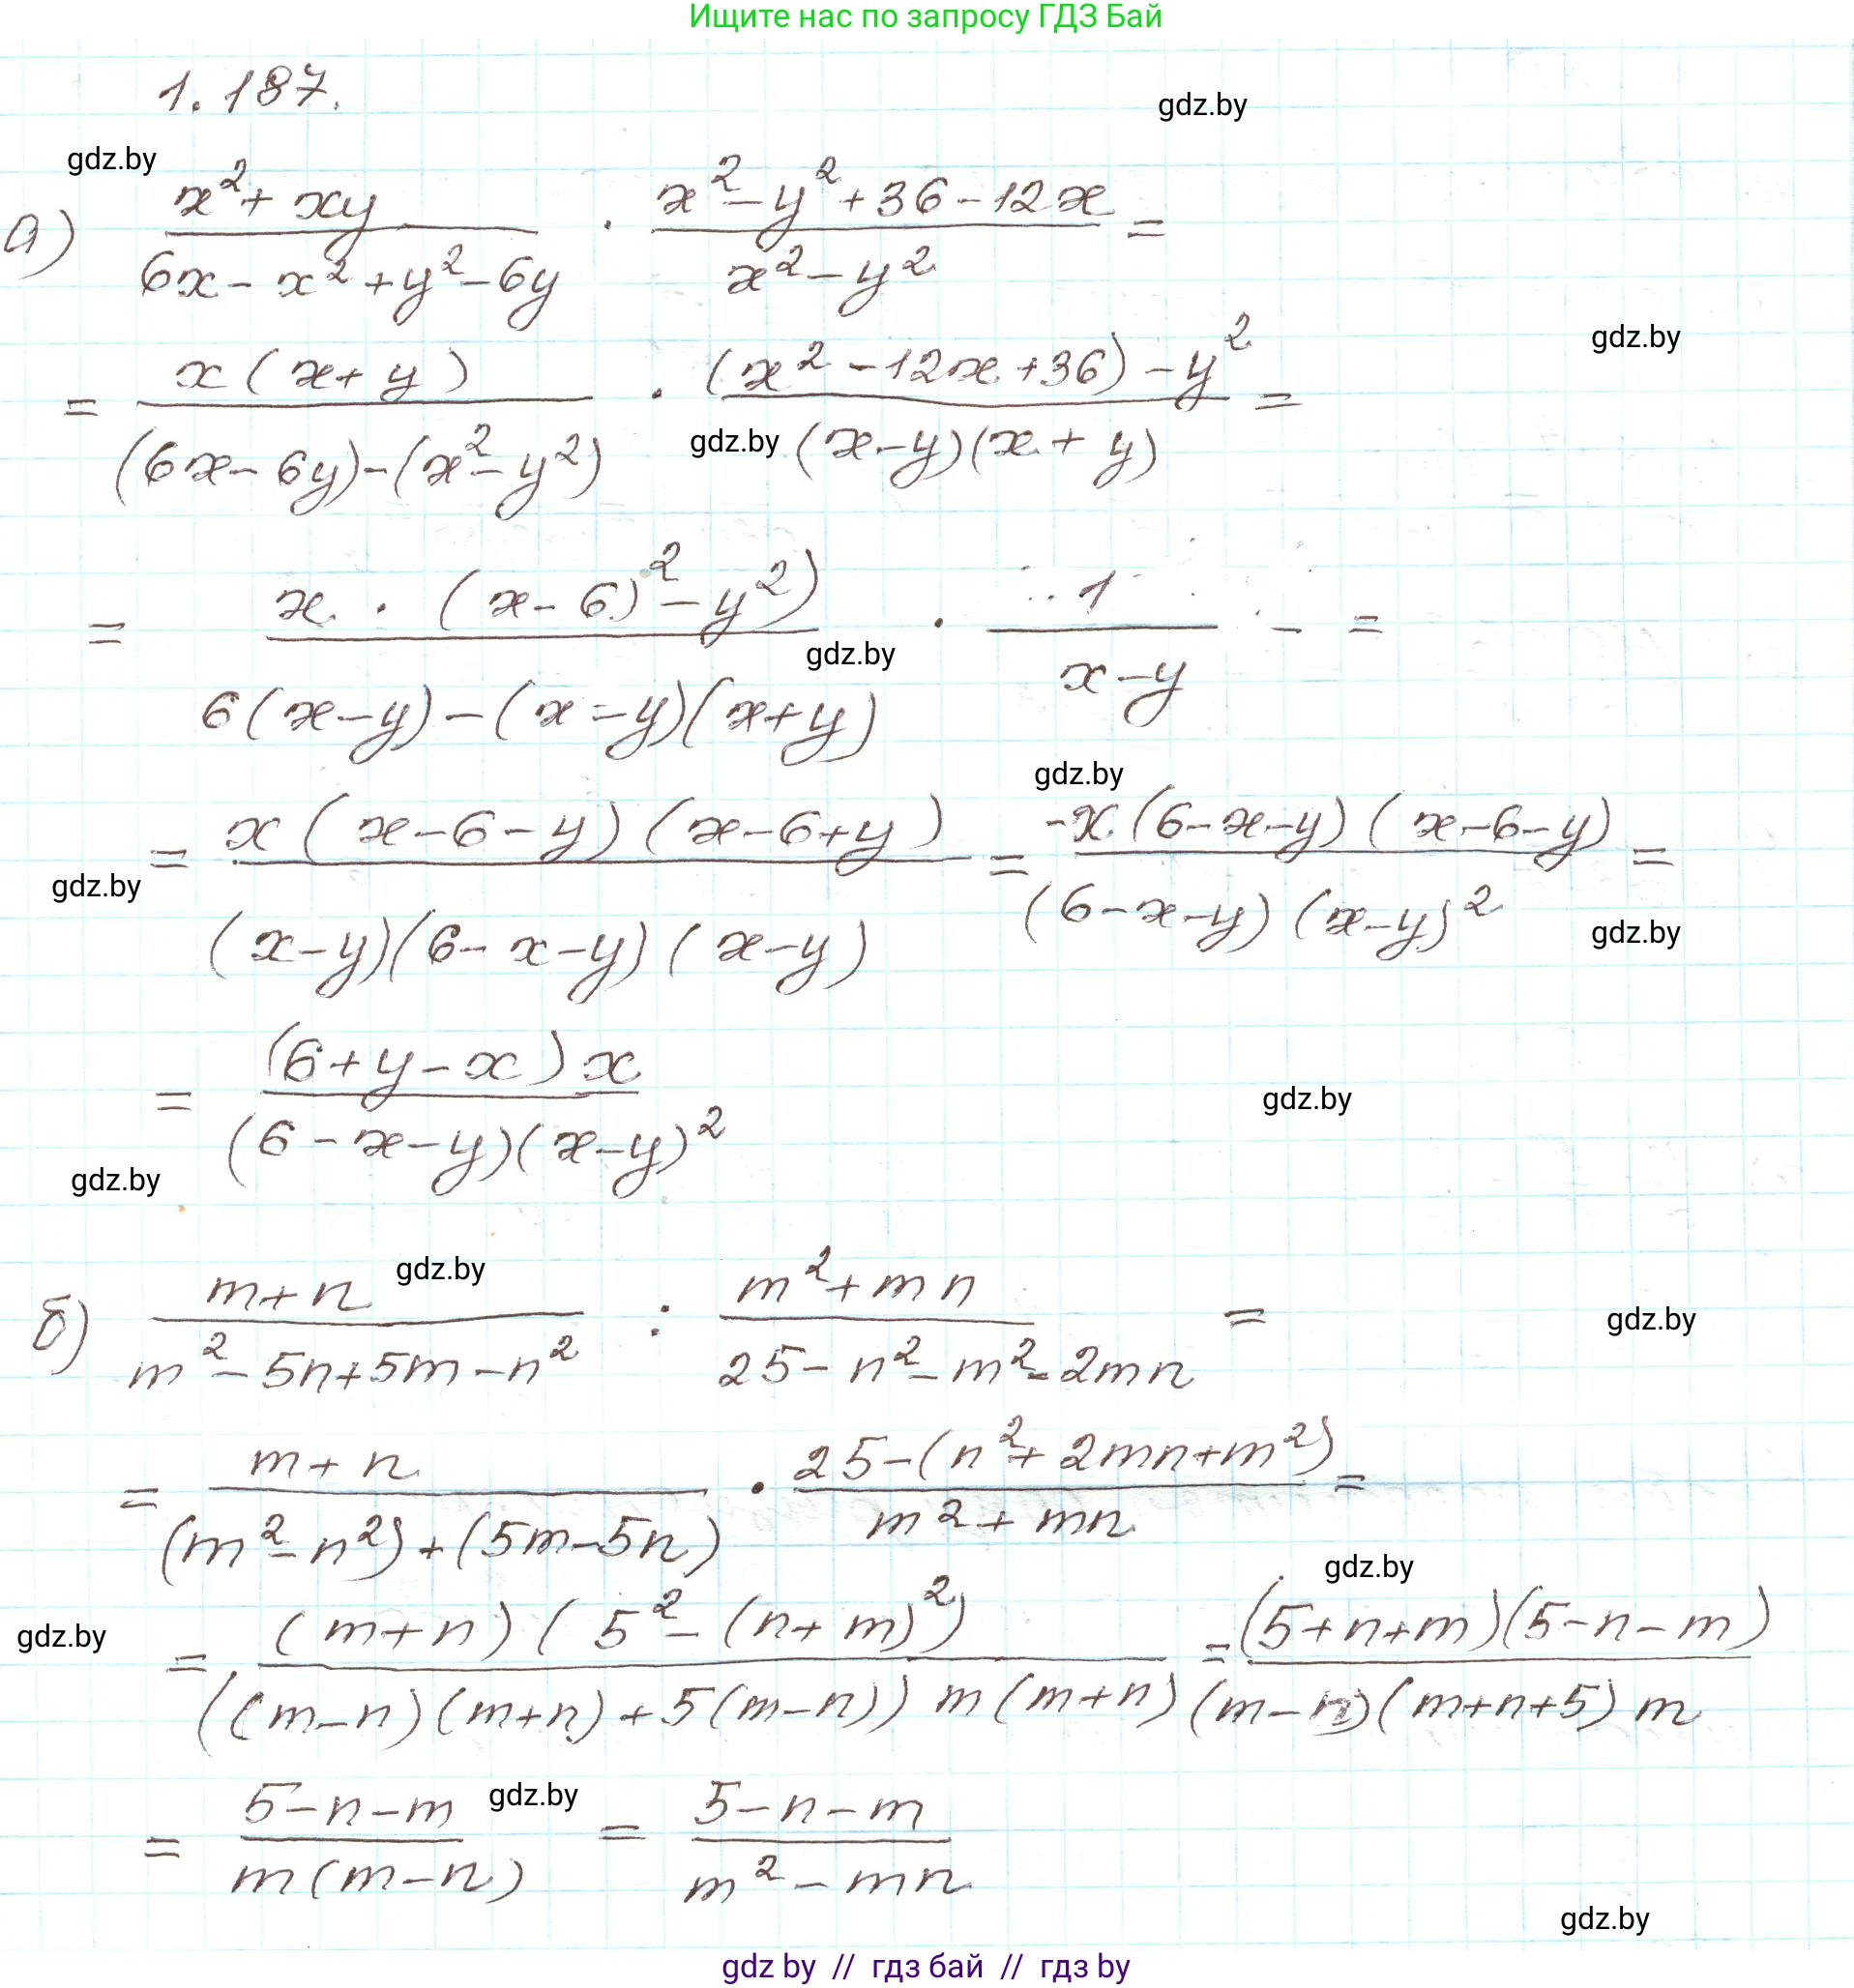 Ищите нас по запросу ГДЗ Бай
1.187.
gdz.by
gdz.by
а) (x² + xy)/(6x - x² + y² - 6y) · (x² - y² + 36 - 12x)/(x² - y²) =
gdz.by
= (x(x + y))/((6x - 6y) - (x² - y²)) · ((x² - 12x + 36) - y²)/((x - y)(x + y)) =
gdz.by
= (x · (x - 6)² - y²))/(6(x - y) - (x - y)(x + y)) · 1/(x - y) - =
gdz.by
gdz.by
= (x(x - 6 - y)(x - 6 + y))/((x - y)(6 - x - y)(x - y)) = (-x(6 - x - y)(x - 6 - y))/((6 - x - y)(x - y)²) =
gdz.by
gdz.by
= ((6 + y - x)x)/((6 - x - y)(x - y)²)
gdz.by
gdz.by
gdz.by
б) (m + n)/(m² - 5n + 5m - n²) : (m² + mn)/(25 - n² - m² - 2mn) =
gdz.by
= (m + n)/((m² - n²) + (5m - 5n)) · (25 - (n² + 2mn + m²))/(m² + mn) =
gdz.by
gdz.by
= ((m + n)(5² - (n + m)²))/(((m - n)(m + n) + 5(m - n)) m(m + n)) = ((5 + n + m)(5 - n - m))/((m - n)(m + n + 5) m)
gdz.by
= (5 - n - m)/(m(m - n)) = (5 - n - m)/(m² - mn)
gdz.by
gdz by // гдз бай // гдз by